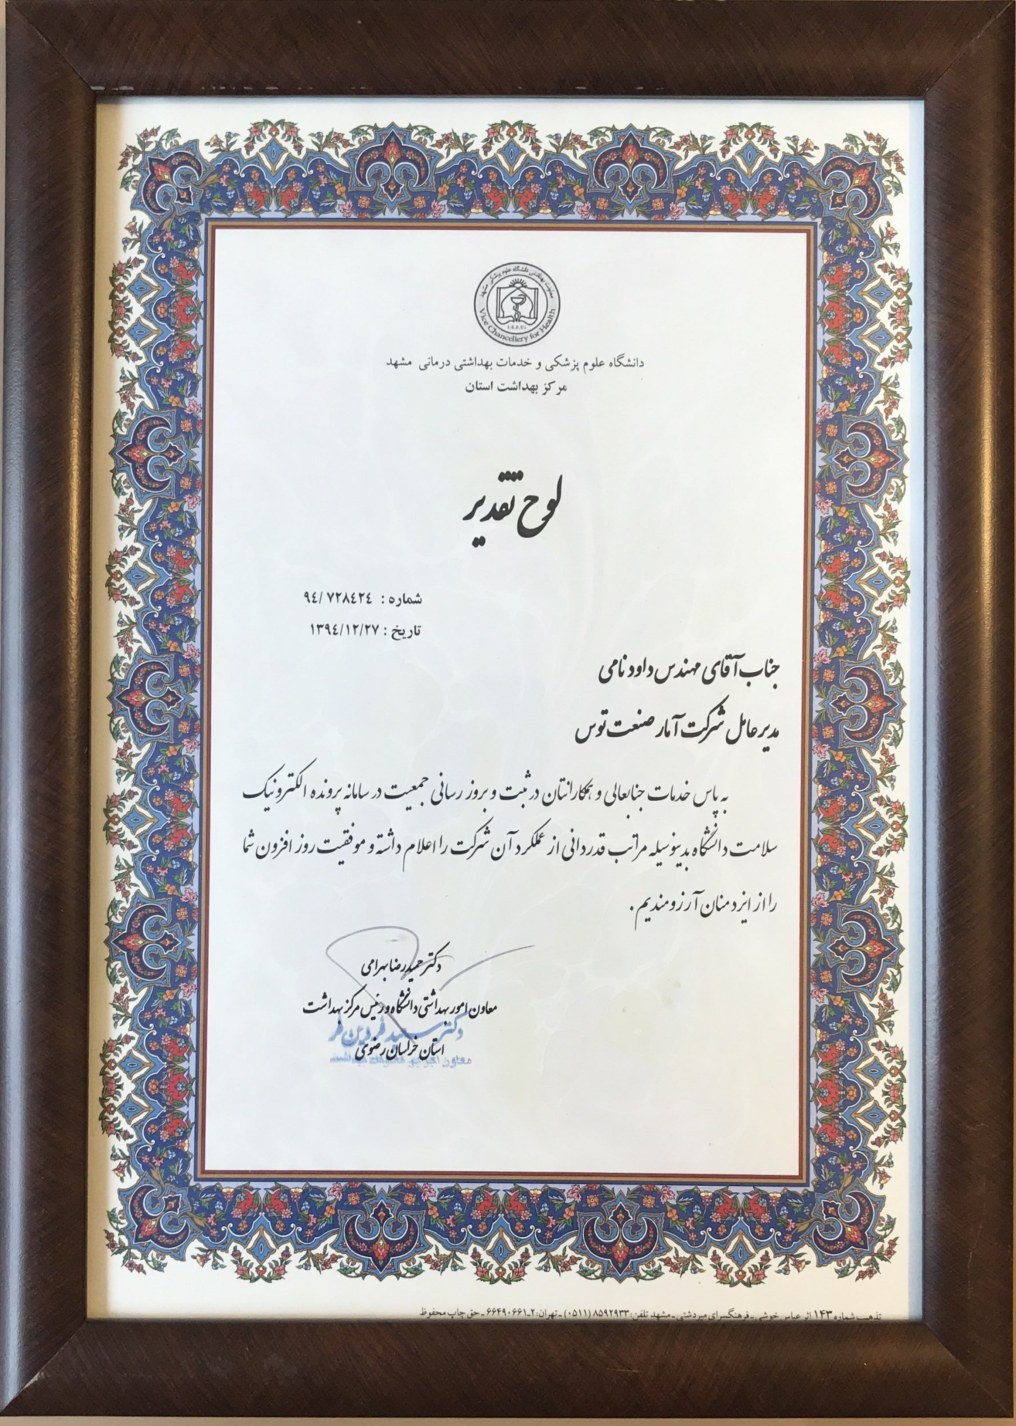 Vice Chancellery for Health
دانشگاه علوم پزشکی و خدمات بهداشتی درمانی مشهد
مرکز بهداشت استان
لوح تقدیر
شماره : ۹٤/۷۲۸٤۲٤
تاریخ : ۱۳۹٤/۱۲/۲۷
جناب آقای مهندس داود نامی
مدیرعامل شرکت آمار صنعت توس
به پاس خدمات جنابعالی و همکارانتان در ثبت و بروز رسانی جمعیت در سامانه پرونده الکترونیک
سلامت دانشگاه بدینوسیله مراتب قدردانی از عملکرد آن شرکت را اعلام داشته و موفقیت روز افزون شما
را از ایزد منان آرزومندیم.
دکتر حمیدرضا بهرامی
معاون امور بهداشتی دانشگاه و رئیس مرکز بهداشت
دکتر سید
استان خراسان رضوی
معاون
تذهیب شماره ۱۴۳ اثر عباس خوشی ـ فرهنگسرای میردشتی ـ مشهد تلفن: ۸۵۹۲۹۳۳ (۰۵۱۱) ـ تهران: ۲ـ۶۶۴۹۰۶۶۱ ـ حق چاپ محفوظ